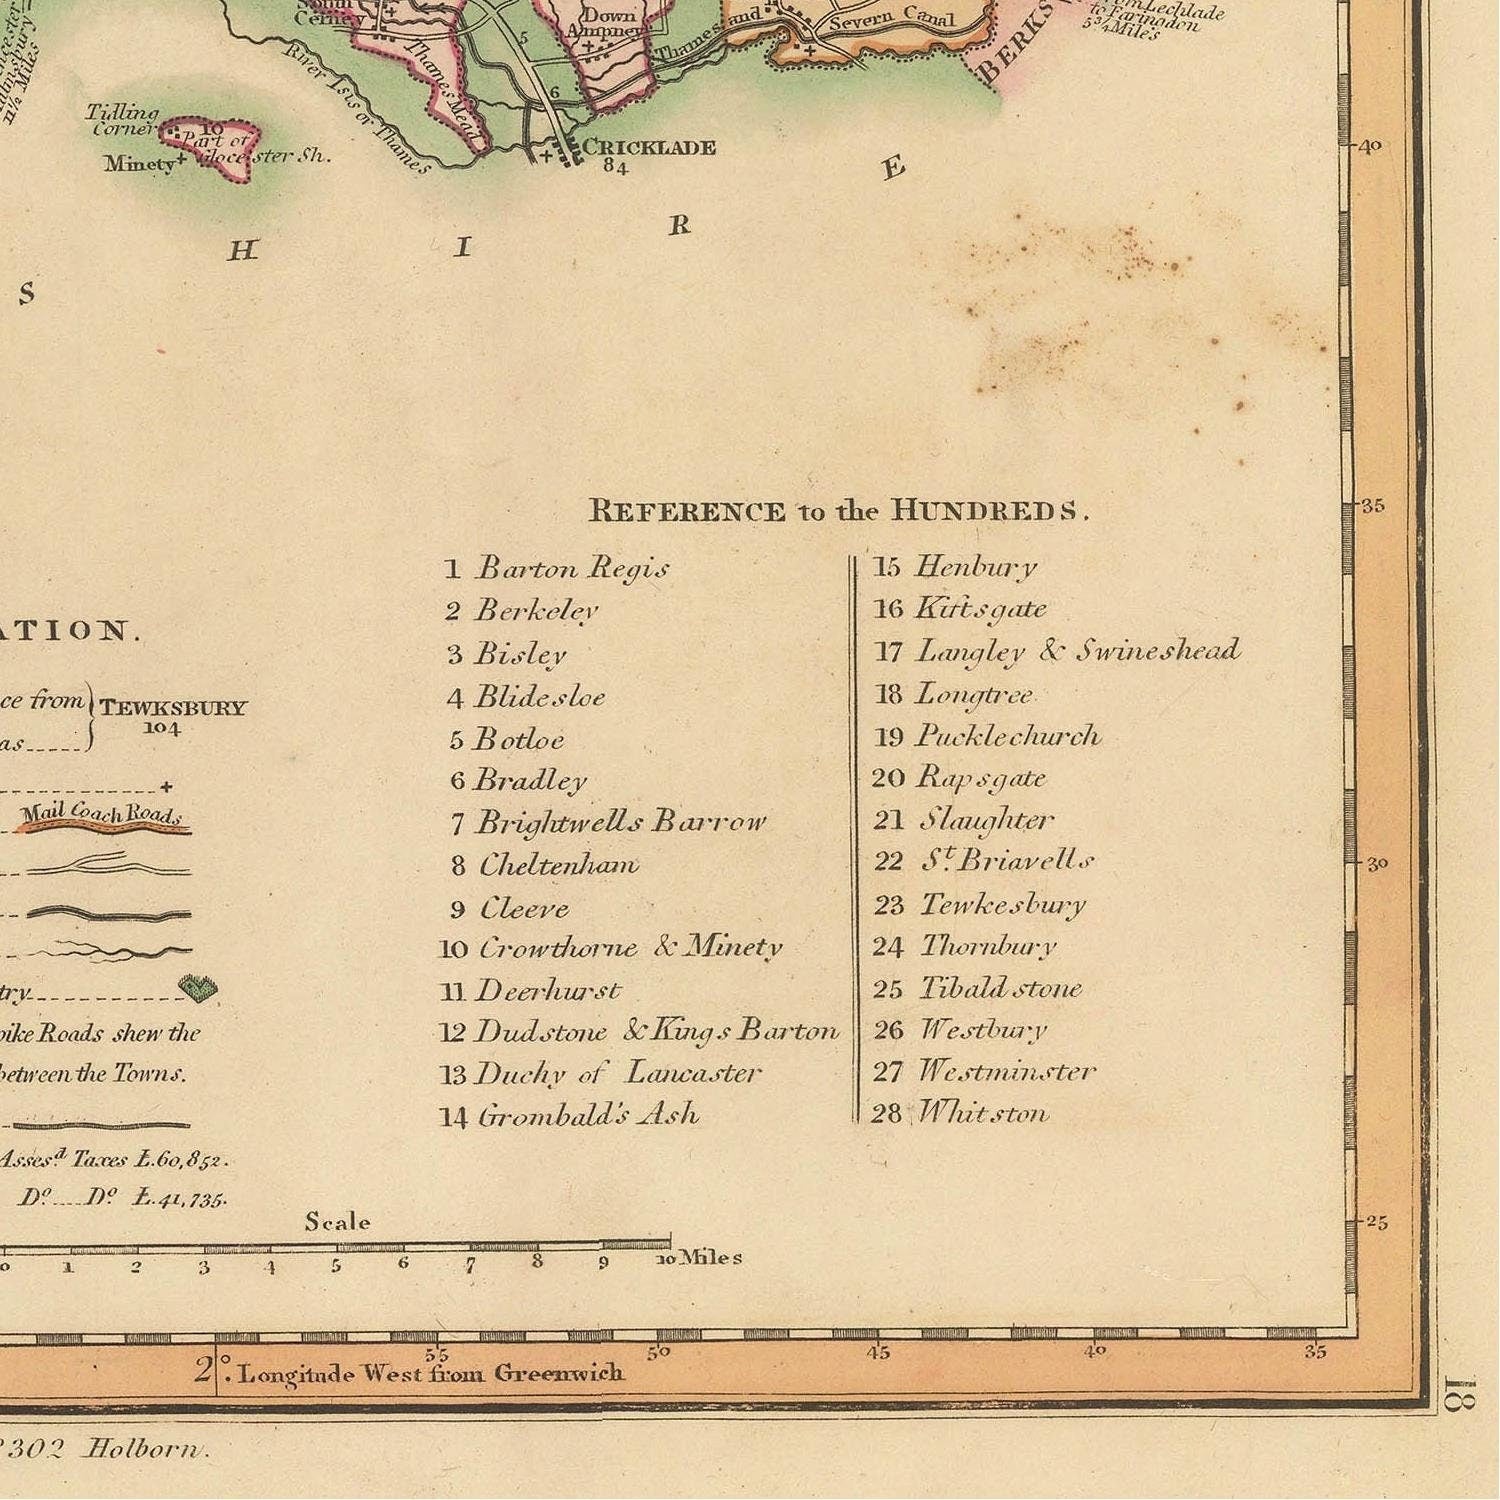 South
Cerney
Down
Ampney
Thames and Severn Canal
BERKS
Lechlade
to Faringdon
5¾ Miles
11½ Miles
River Isis or Thames
Thames Mead
5
6
Tidling
Corner
10
Part of
Glocester Sh.
Minety
CRICKLADE
84
40
E
R
H
I
S
REFERENCE to the HUNDREDS.
35
1 Barton Regis
2 Berkeley
3 Bisley
4 Blidesloe
5 Botloe
6 Bradley
7 Brightwells Barrow
8 Cheltenham
9 Cleeve
10 Crowthorne & Minety
11 Deerhurst
12 Dudstone & Kings Barton
13 Duchy of Lancaster
14 Grombald's Ash
15 Henbury
16 Kiftsgate
17 Langley & Swineshead
18 Longtree
19 Pucklechurch
20 Rapsgate
21 Slaughter
22 St. Briavells
23 Tewkesbury
24 Thornbury
25 Tibaldstone
26 Westbury
27 Westminster
28 Whitston
30
25
ATION.
ce from
as
TEWKSBURY
104
Mail Coach Roads
try
pike Roads shew the
between the Towns.
Assesd. Taxes £.60,852.
Do. Do. £.41,735.
Scale
0 1 2 3 4 5 6 7 8 9 10 Miles
55 50 45 40 35
2°. Longitude West from Greenwich
18
302 Holborn.